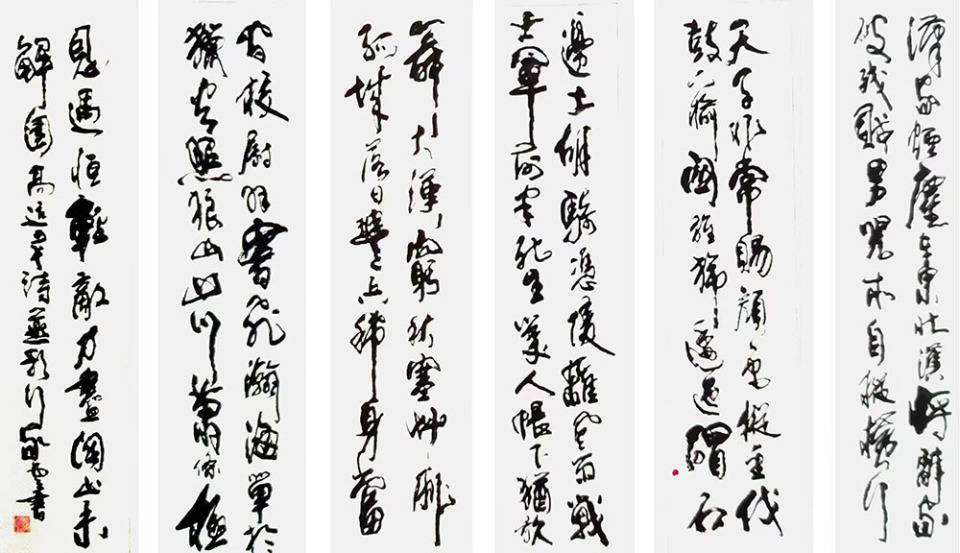 漢家煙塵在東北漢將辭家
破殘賊男兒本自縱橫行
天子非常賜顏色縱金伐
鼓下榆關旌旆逶迤碣石
邊土胡騎憑陵雜風雨戰
士軍前半死生美人帳下猶歌
舞大漠窮秋塞草腓
孤城落日鬥兵稀身當
間校尉羽書飛瀚海單于
獵火照狼山山川蕭條極
恩遇恆輕敵力盡關山未
解圍高適詩燕歌行書